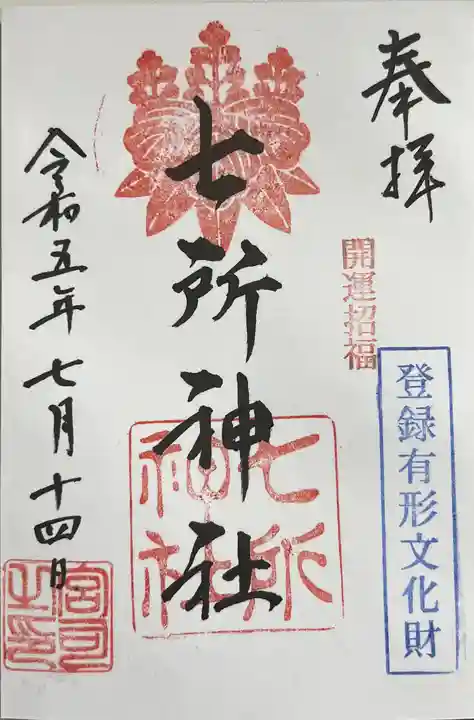 奉拝
開運招福
登録有形文化財
七所神社
七所神社
令和五年七月十四日
宮司之印